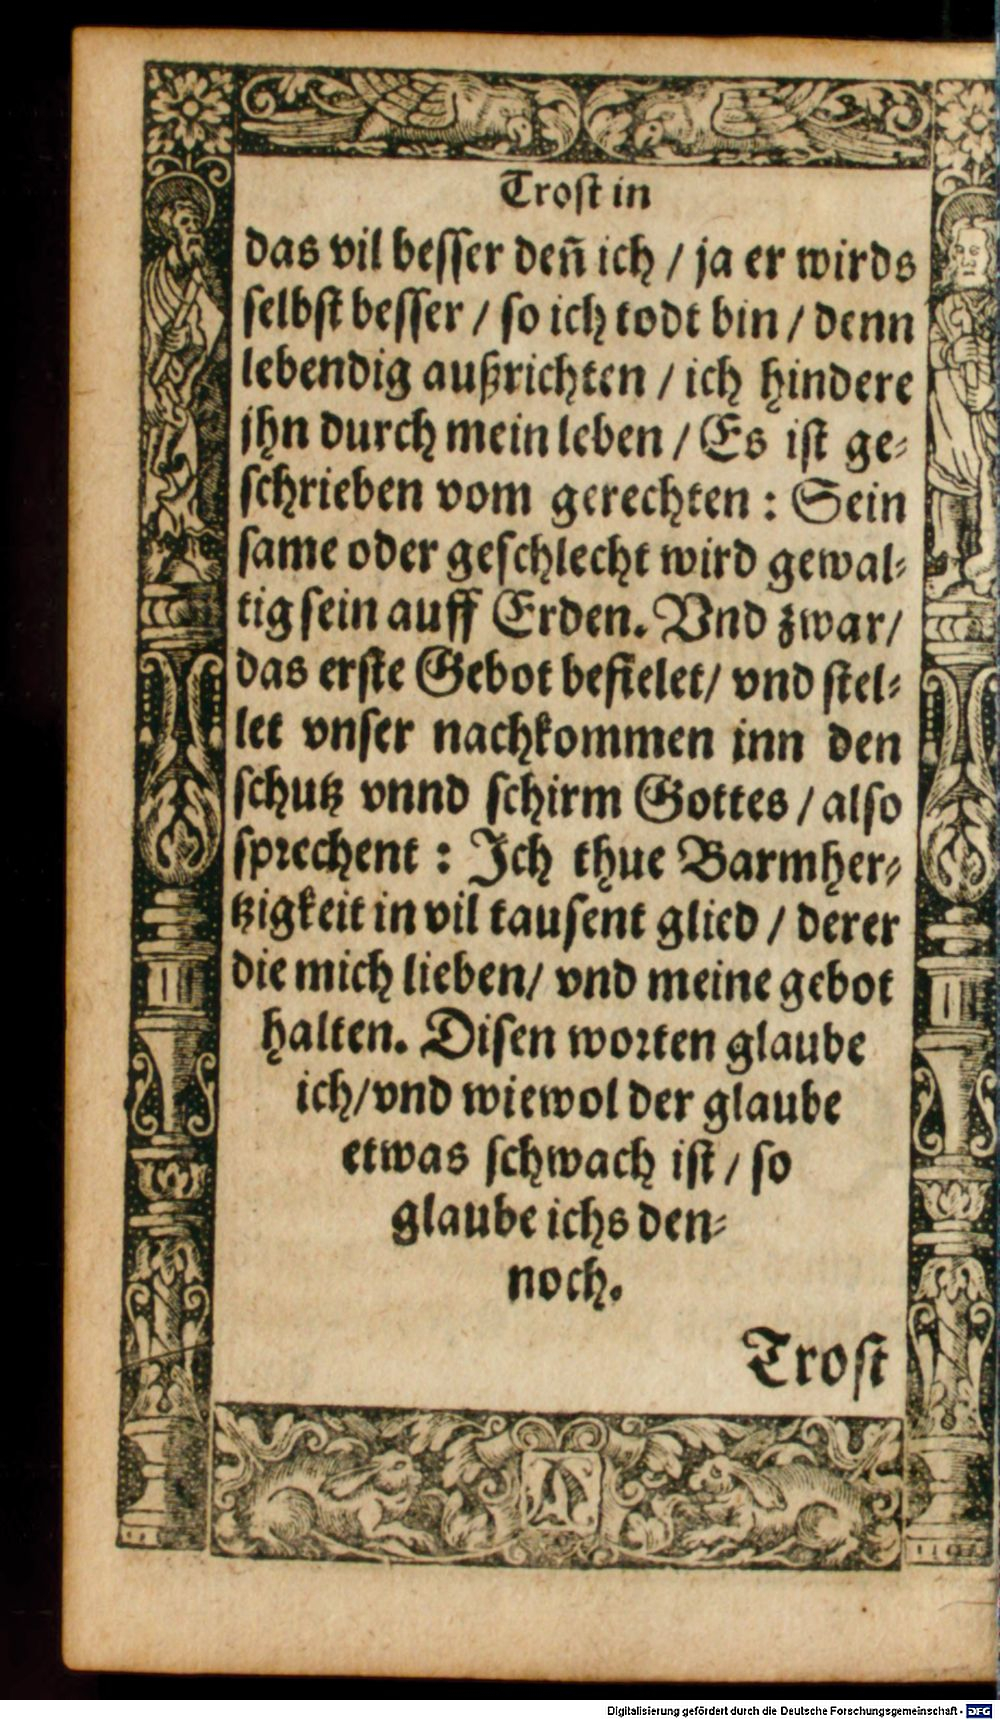 Trost in
das vil besser deñ ich / ja er wirds
selbst besser / so ich todt bin / denn
lebendig außrichten / ich hindere
jhn durch mein leben / Es ist ge-
schrieben vom gerechten : Sein
same oder geschlecht wird gewal-
tig sein auff Erden. Vnd zwar /
das erste Gebot befielet / vnd stel-
let vnser nachkommen inn den
schutz vnnd schirm Gottes / also
sprechent : Ich thue Barmher-
tzigkeit in vil tausent glied / derer
die mich lieben / vnd meine gebot
halten. Disen worten glaube
ich / vnd wiewol der glaube
etwas schwach ist / so
glaube ichs den-
noch.
Trost
Digitalisierung gefördert durch die Deutsche Forschungsgemeinschaft - DFG